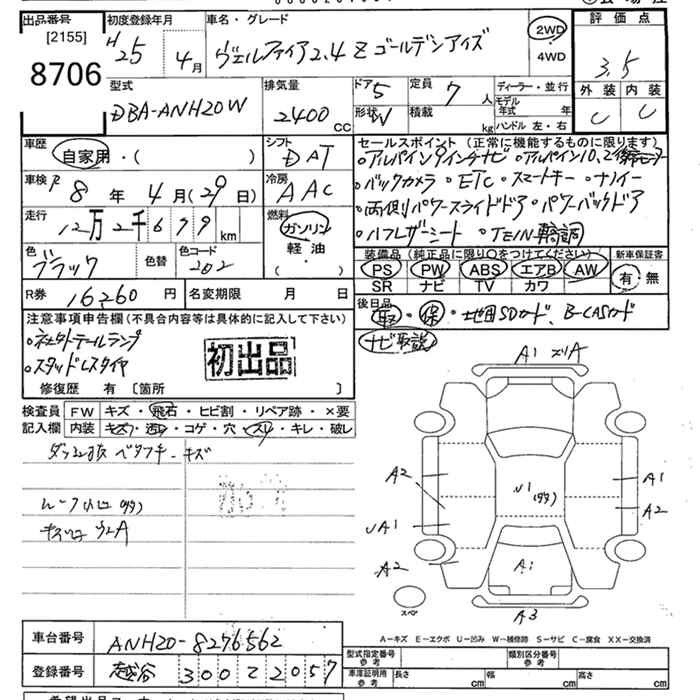 出品番号
[2155]
8706
初度登録年月
H25 年 4月
車名・グレード
ヴェルファイア2.4 Z ゴールデンアイズ
2WD
4WD
評価点
3.5
外装 内装
C C
型式
DBA-ANH20W
排気量
2400 cc
ドア 5
形状 W
定員 7人
積載 kg
ディーラー・並行
モデル年式 年
ハンドル 左・右
車歴
自家用・( )
シフト
DAT
車検 R 8年 4月(29日)
冷房
AAC
走行
12万2千679 km
燃料
ガソリン
軽油
( )
色
ブラック
色替
色コード
202
R券 16260 円
名変期限 月 日
セールスポイント (正常に機能するものに限ります)
・アルパイン9インチナビ ・アルパイン10.2
・バックカメラ ・ETC ・スマートキー ・ナノイー
・両側パワースライドドア ・パワーバックドア
・ハーフレザーシート ・TEIN車高調
装備品 (純正品に限り○をつけてください)
PS PW ABS エアB AW
SR ナビ TV カワ
新車保証書
有・無
後日品
取・保・地図SDカード、B-CASカード
ナビ取説
注意事項申告欄(不具合内容等は具体的に記入して下さい)
・社外テールランプ
・スタッドレスタイヤ
初出品
修復歴 有 〔箇所 〕
検査員
記入欄
FW キズ・飛石・ヒビ割・リペア跡・×要
内装 キズ・汚・コゲ・穴・スリ・キレ・破レ
キズ
A1 スリA
A2
UA1
A2
U1
A1
A1
A2
A3
スペア
A-キズ E-エクボ U-凹み W-補修跡 S-サビ C-腐食 XX-交換済
車台番号 ANH20-8276562
登録番号 越谷 300 Z 2057
型式指定番号
参考
類別区分番号
参考
車庫証明用
参考
長さ cm 幅 cm 高さ cm